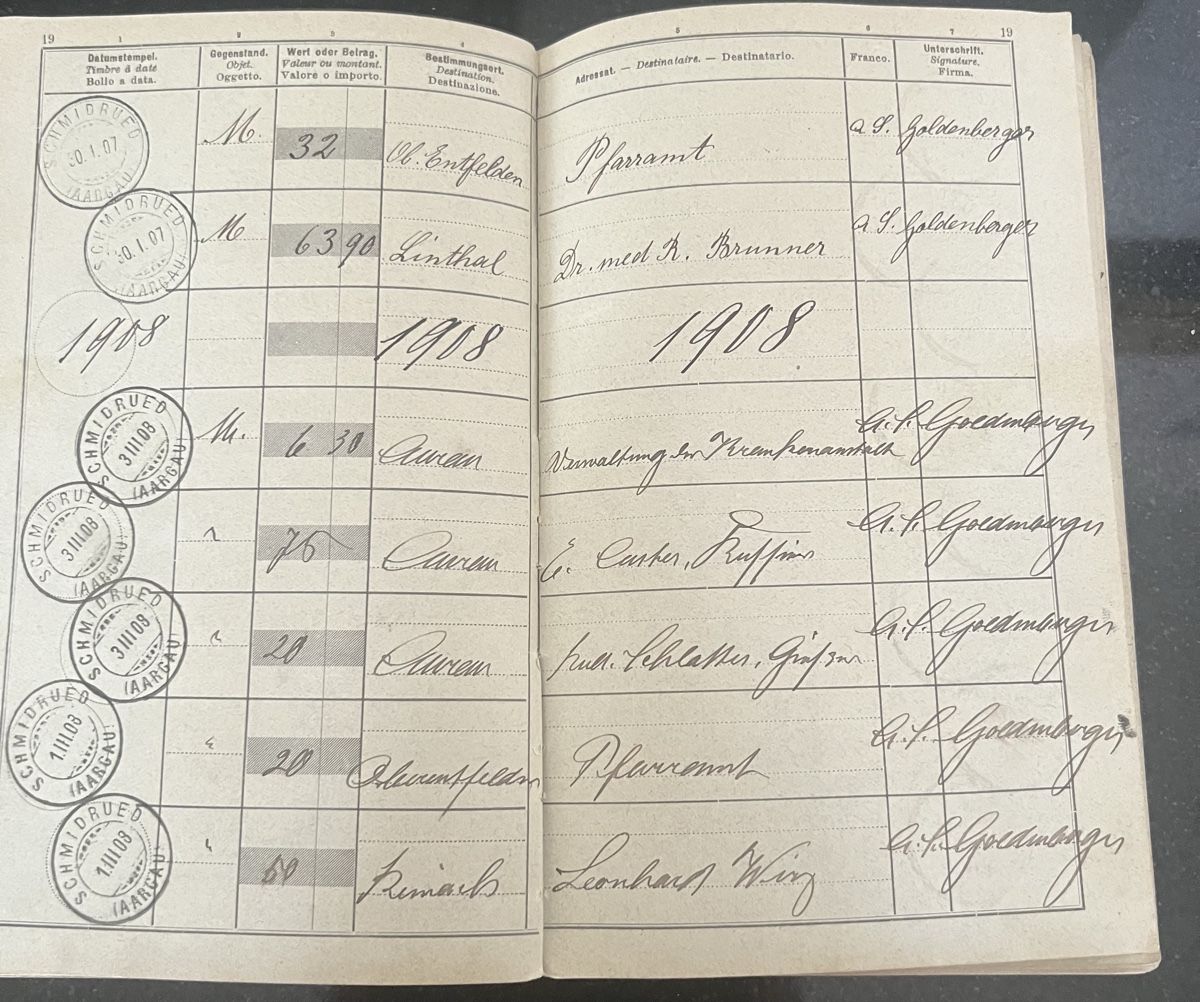 19 1 2 3 4 5 6 7 19
Datumstempel. Gegenstand. Wert oder Betrag. Bestimmungsort. Adressat. — Destinataire. — Destinatario. Franco. Unterschrift.
Timbre à date Objet. Valeur ou montant. Destination. Signature.
Bollo a data. Oggetto. Valore o importo. Destinazione. Firma.
SCHMIDRUED 30.I.07 (AARGAU) M. 32 Ob. Entfelden Pfarramt a S. Goldenberger
SCHMIDRUED 30.I.07 (AARGAU) M 63 90 Linthal Dr. med R. Brunner a S. Goldenberger
1908 1908 1908
SCHMIDRUED 3 III 08 (AARGAU) M. 6 30 Aarau Verwaltung der Krankenanstalt
SCHMIDRUED 3 III 08 (AARGAU) " 75 Aarau E. Custer,
SCHMIDRUED 3 III 08 (AARGAU) " 20 Aarau Schlatter,
SCHMIDRUED 1 III 08 (AARGAU) " 20 Oberentfelden Pfarramt
SCHMIDRUED 1 III 08 (AARGAU) " 50 Reinach Leonhard Wirz